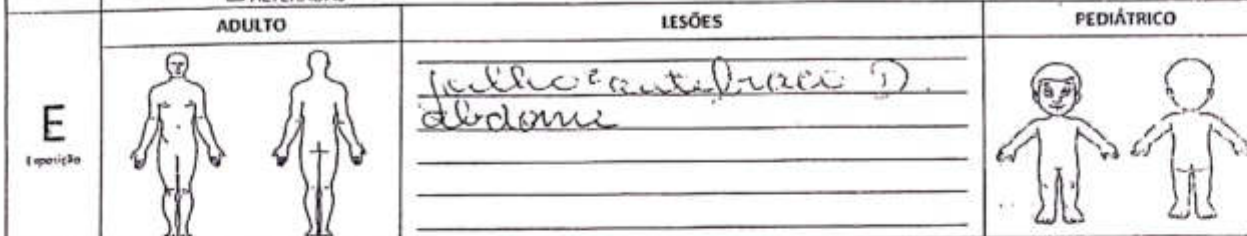 ADULTO
LESÕES
PEDIÁTRICO
E
Exposição
antebraço D.
abdome